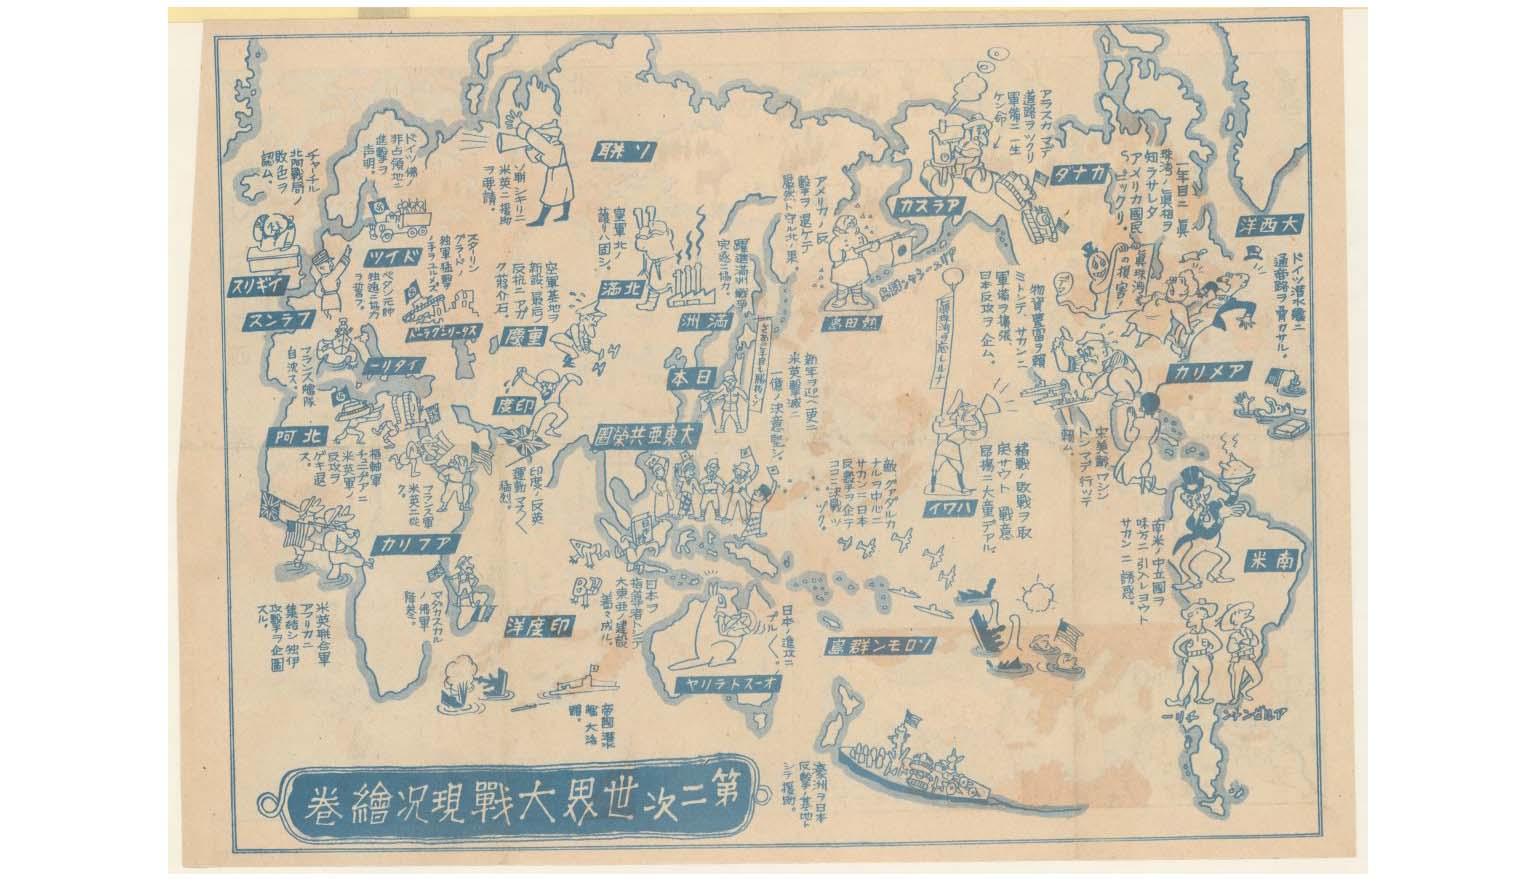 第二次世界大戰現況繪巻
チャーチル
北阿戰局ノ
敗色ヲ
認ム。
イギリス
ドイツ佛ノ
非占領地ニ
進撃ヲ
声明。
ドイツ
フランス
ペタン元帥
独逸ニ協力
ヲ誓フ。
スターリン
グラードノ
独軍猛撃
スターリングラード
イタリー
フランス艦隊
自沈ス。
北阿
樞軸軍
チュニヂアニ
米英軍ノ
反攻ヲ
ゲキ退
ス。
フランス軍
米英ニ從
ク。
アフリカ
米英聯合軍
アフリカニ
集結シ独伊
攻撃ヲ企圖
スル。
マダカスカル
ノ佛軍
降参。
ソ聯
ソ聯シキリニ
米英ニ援助
ヲ要請。
皇軍北ノ
護リハ固シ。
北満
空軍基地ヲ
新設、最后ノ
反抗ニアガ
ク蒋介石。
重慶
印度
印度ノ反英
運動マス〱
猛烈。
躍進滿洲戰爭
完遂ニ協力。
満洲
日本
新年ヲ迎ヘ更ニ
米英撃滅ニ
一億ノ決意堅シ。
大東亜共榮圏
日本ヲ
指導者トシテ
大東亜ノ建設
着々成ル。
印度洋
帝國潜
艦大活
躍。
日本ノ進攻ニ
ブル〱。
オーストラリヤ
濠洲ヲ日本
反撃ノ基地ト
シテ援助。
アメリカノ反
撃ヲ退ケテ
嚴然ト守ル北ノ果。
熱田島
アリューシャン列島
アラスカ
アラスカマデ
道路ヲツクリ
軍備ニ一生
ケン命
カナダ
一年目ニ眞
珠湾ノ眞相ヲ
知ラサレタ
アメリカ國民
ビックリ。
真珠湾
の損害
大西洋
ドイツ潜水艦ニ
通商路ヲ脅カサル。
アメリカ
物資豊富ヲ頼
ミトシテ、サカンニ
軍備ヲ擴張
日本反攻ヲ企ム。
真珠湾ヲ忘レルナ
ハワイ
緒戰ノ敗戰ヲ取
戾サウト戰意
昻揚ニ大童デアル
宋美齢ワシン
トンマデ行ッテ
頼ム。
敵ガダルカ
ナルヲ中心ニ
サカンニ日本
反撃ヲ企テ
ココニ決戰ツ
ヅク。
ソロモン群島
南米ノ中立國ヲ
味方ニ引入レヨウト
サカンニ誘惑。
南米
チリー
アルゼンチン